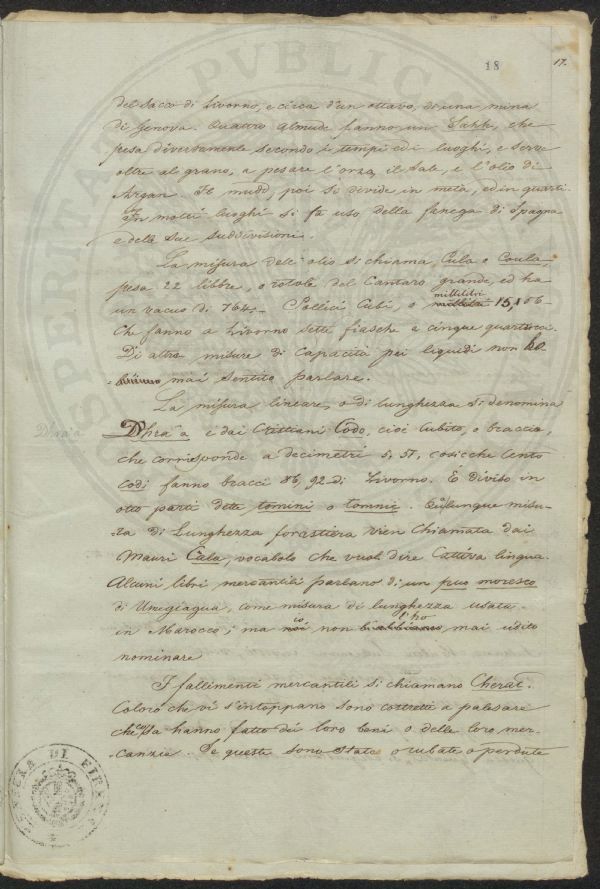 18
17.
del Sacco di Livorno, e circa d'un ottavo, di una mina
di Genova. Quattro Almude fanno un Sahh, che
pesa diversamente secondo i tempi ed i luoghi, e serve
oltre al grano, a pesare l'orzo, il Sale, e l'olio di
Argan. Il mudd, poi si divide in metà, ed in quarti.
In molti luoghi si fà uso della fanega di Spagna
e delle sue suddivisioni.
La misura dell'olio si chiama, Cula o Coula,
pesa 22 libbre, o rotole del Cantaro grande, ed ha
un vacuo di 764,- Pollici Cubi, o millilitri 15,106-
Che fanno a Livorno sette fiasche e cinque quartucci.
Di altre misure di capacità pei liquidi non ho
mai sentito parlare.
La misura lineare, o di lunghezza si denomina
Dhra'a
Dhra'a e dai Cristiani Codo, cioè Cubito, o braccio,
che corrisponde a decimetri 5,51, cosicchè cento
codi fanno bracci 86,92 di Livorno. È diviso in
otto parti dette tomini o tomnie. Qualunque misu-
ra di Lunghezza forastiera vien chiamata dai
Mauri Cala, vocabolo che vuol dire Cattiva lingua.
Alcuni libri mercantili parlano di un pico moresco
di Umegiagua, come misura di lunghezza usata
in Marocco; ma io non l'ho mai udito
nominare
I fallimenti mercantili si chiamano Cherat.
Coloro che vi s'intoppano sono costretti a palesare
che cosa hanno fatto dei loro beni o delle loro mer-
canzie. Se queste sono state o rubate o perdute